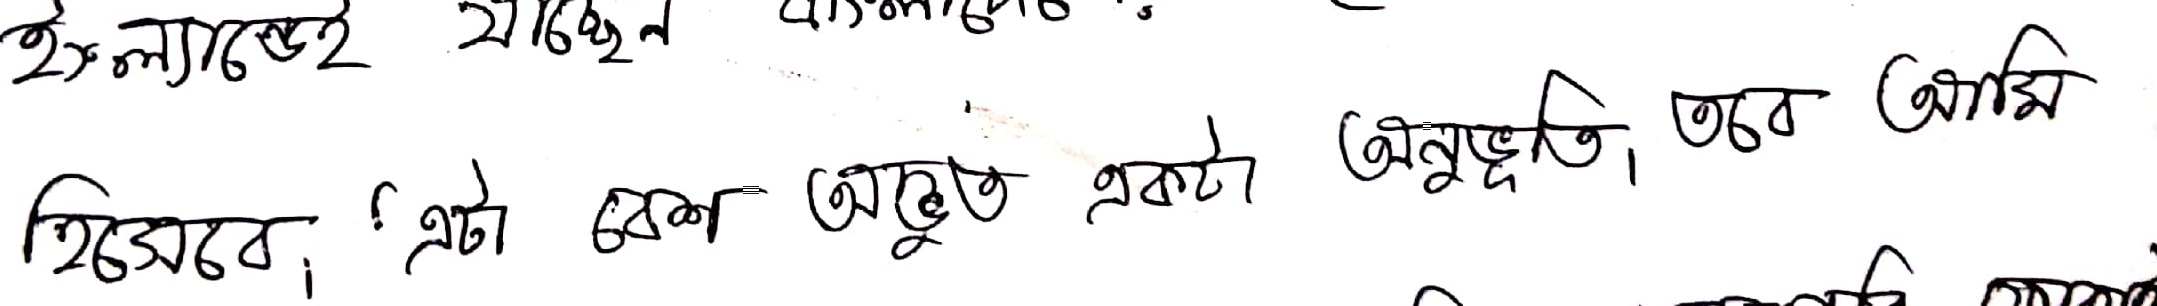 ইংল্যান্ডেই যাচ্ছেন
হিসেবে। 'এটা বেশ অদ্ভুত একটা অনুভূতি। তবে আমি